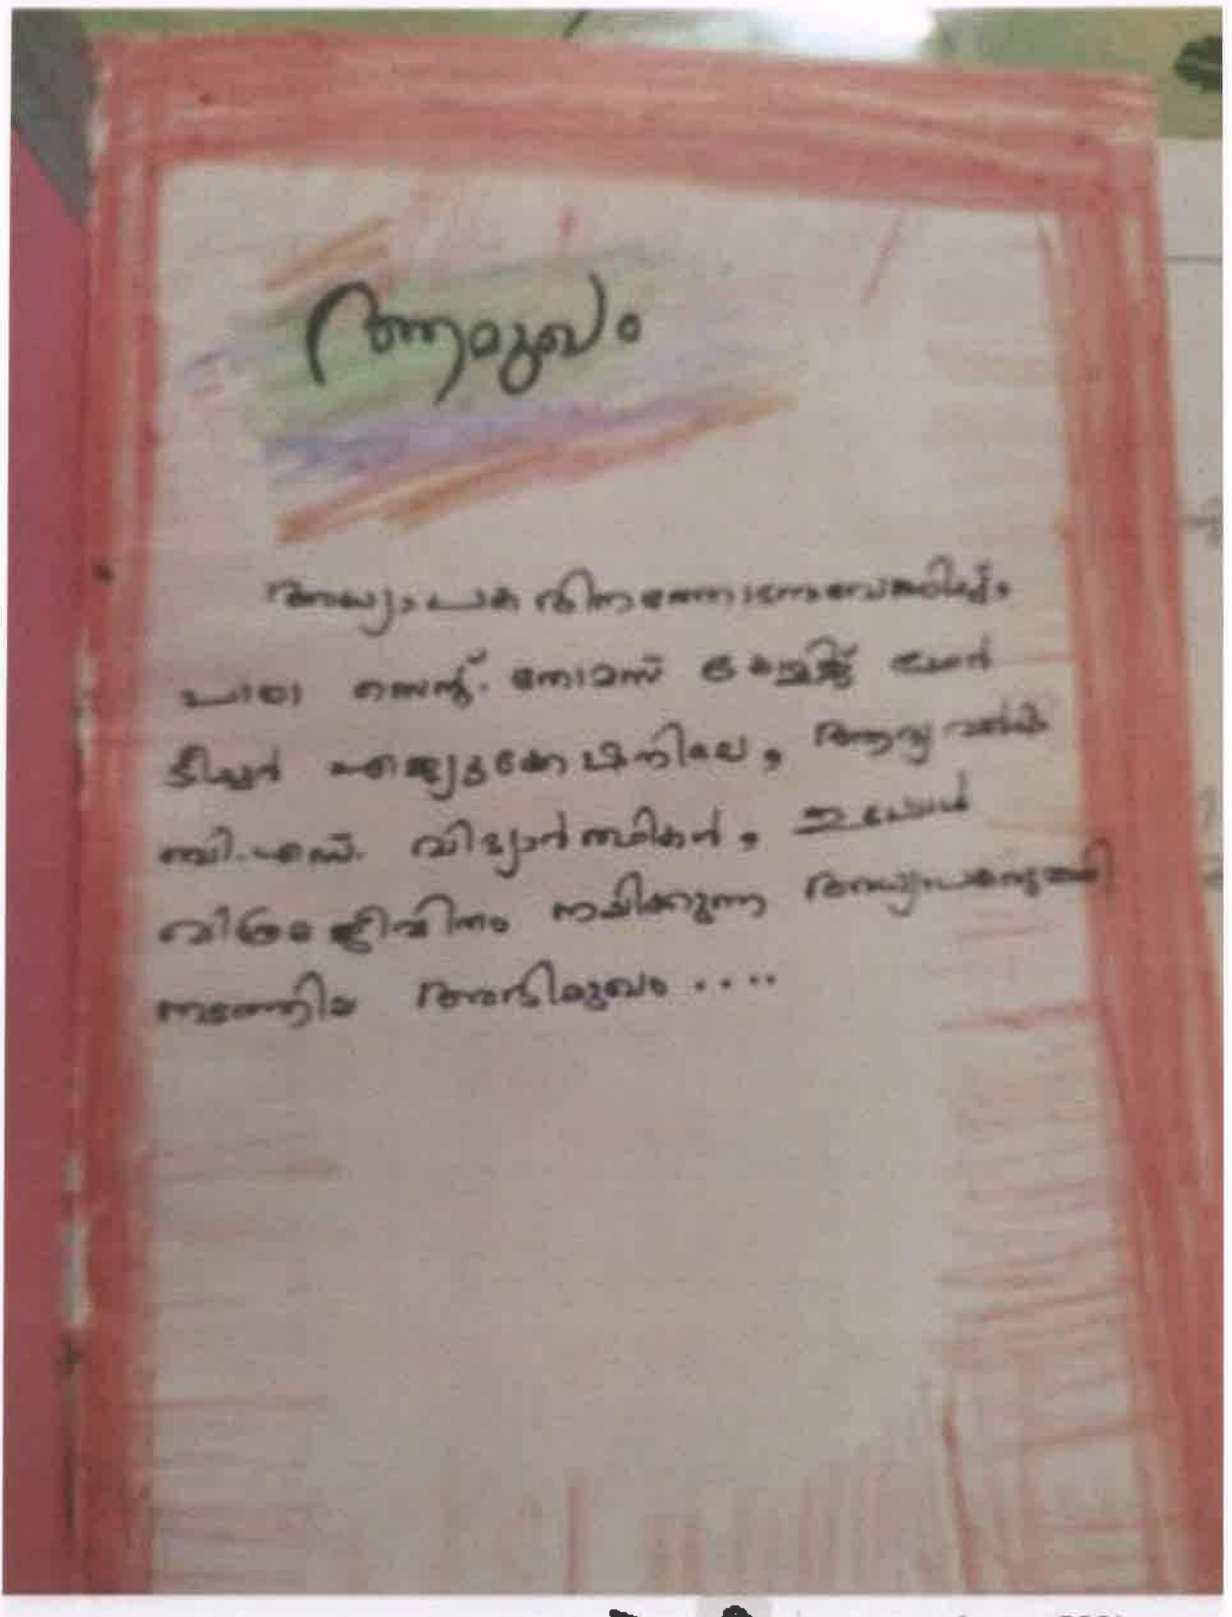 ആമുഖം
അധ്യാപക ദിനത്തോടനുബന്ധിച്ച്
പാലാ സെന്റ്. തോമസ് കോളേജ് ഓഫ്
ടീച്ചർ എജ്യുക്കേഷനിലെ, ആദ്യ വർഷ
ബി.എഡ്. വിദ്യാർത്ഥികൾ, ഇപ്പോൾ
വിശ്രമ ജീവിതം നയിക്കുന്ന അധ്യാപകരുമായി
നടത്തിയ അഭിമുഖം ....